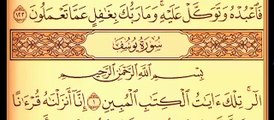 فَٱعْبُدْهُ وَتَوَكَّلْ عَلَيْهِ ۚ وَمَا رَبُّكَ بِغَٰفِلٍ عَمَّا تَعْمَلُونَ ١٢٣
سُورَةُ يُوسُفَ
بِسْمِ ٱللَّهِ ٱلرَّحْمَٰنِ ٱلرَّحِيمِ
الٓر ۚ تِلْكَ ءَايَٰتُ ٱلْكِتَٰبِ ٱلْمُبِينِ ١ إِنَّآ أَنزَلْنَٰهُ قُرْءَٰنًا